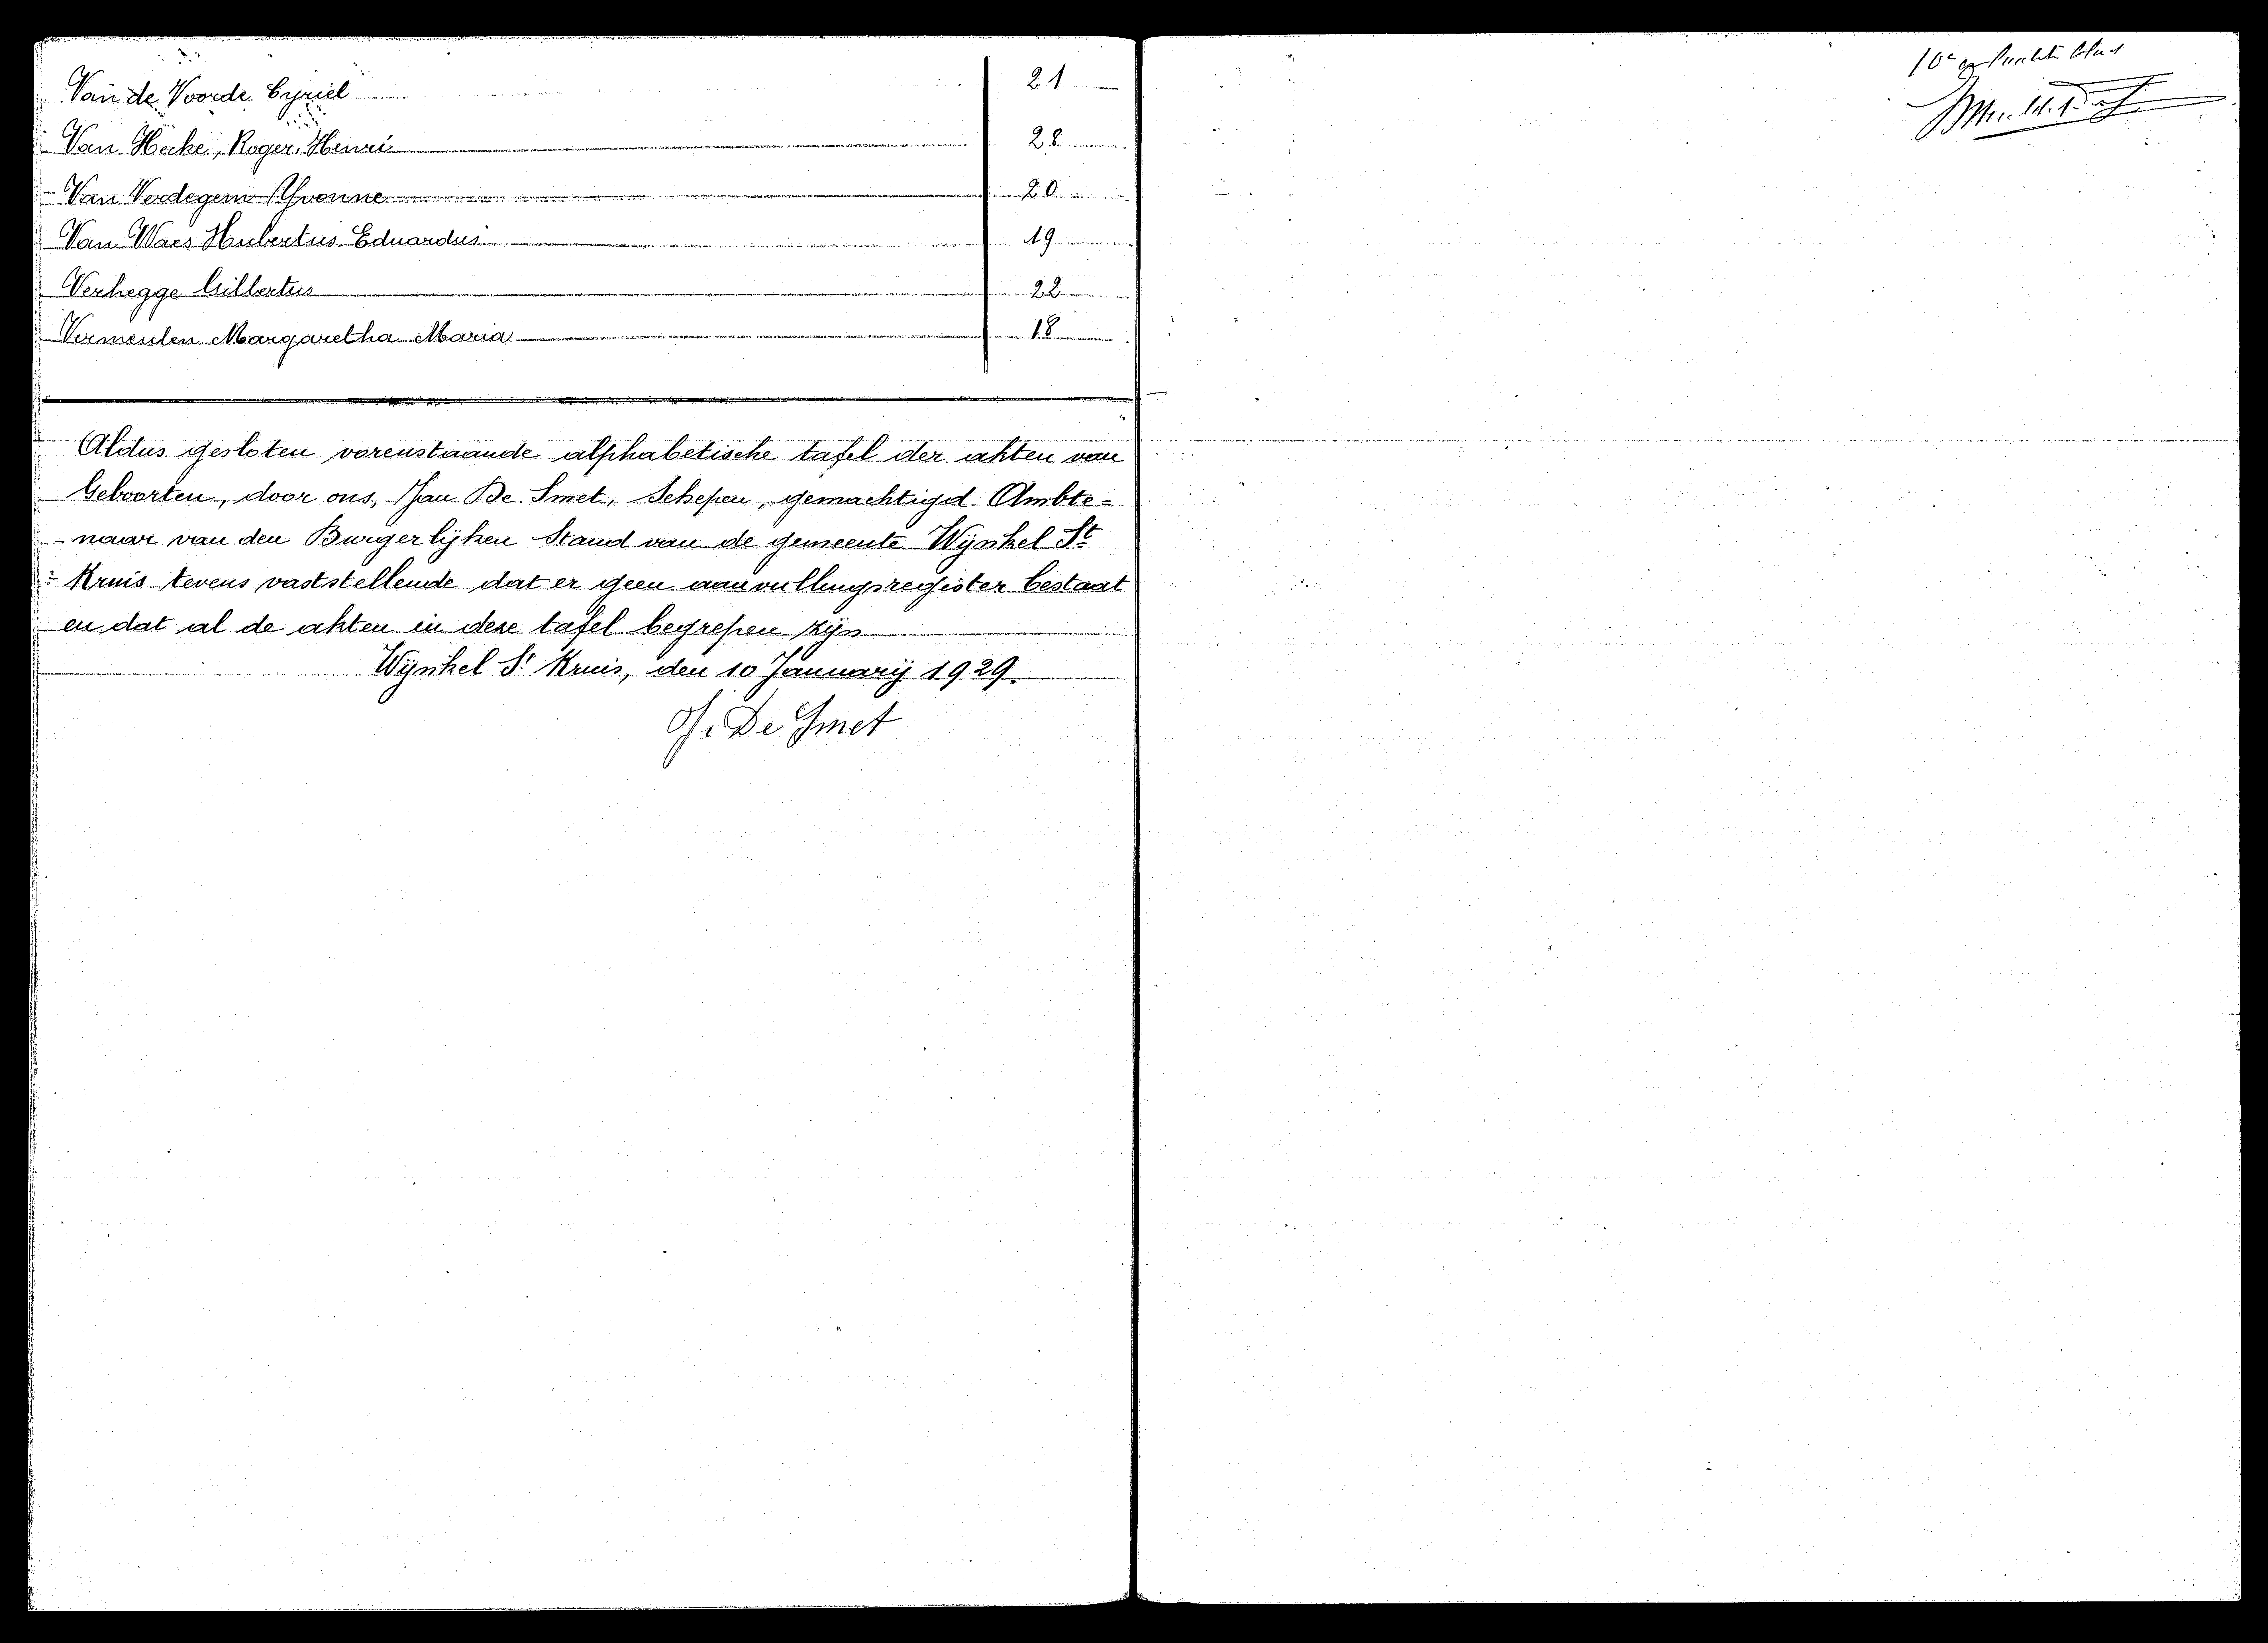 Van de Voorde Cyriel 21
Van Hecke, Roger, Henri 28
Van Verdegem Yvonne 20
Van Waes Hubertus Eduardus 19
Verhegge Gillertus 22
Vermeulen Margaretha Maria 18
Aldus gesloten vorenstaande alphabetische tafel der akten van
Geboorten, door ons, Jan De Smet, Schepen, gemachtigd Ambte=
-naar van den Burgerlijken Stand van de gemeente Wynkel St
= Kruis tevens vaststellende dat er geen aanvullingsregister bestaat
en dat al de akten in deze tafel begrepen zijn
Wynkel St Kruis, den 10 Januarij 1929.
J. De Smet
10e blad